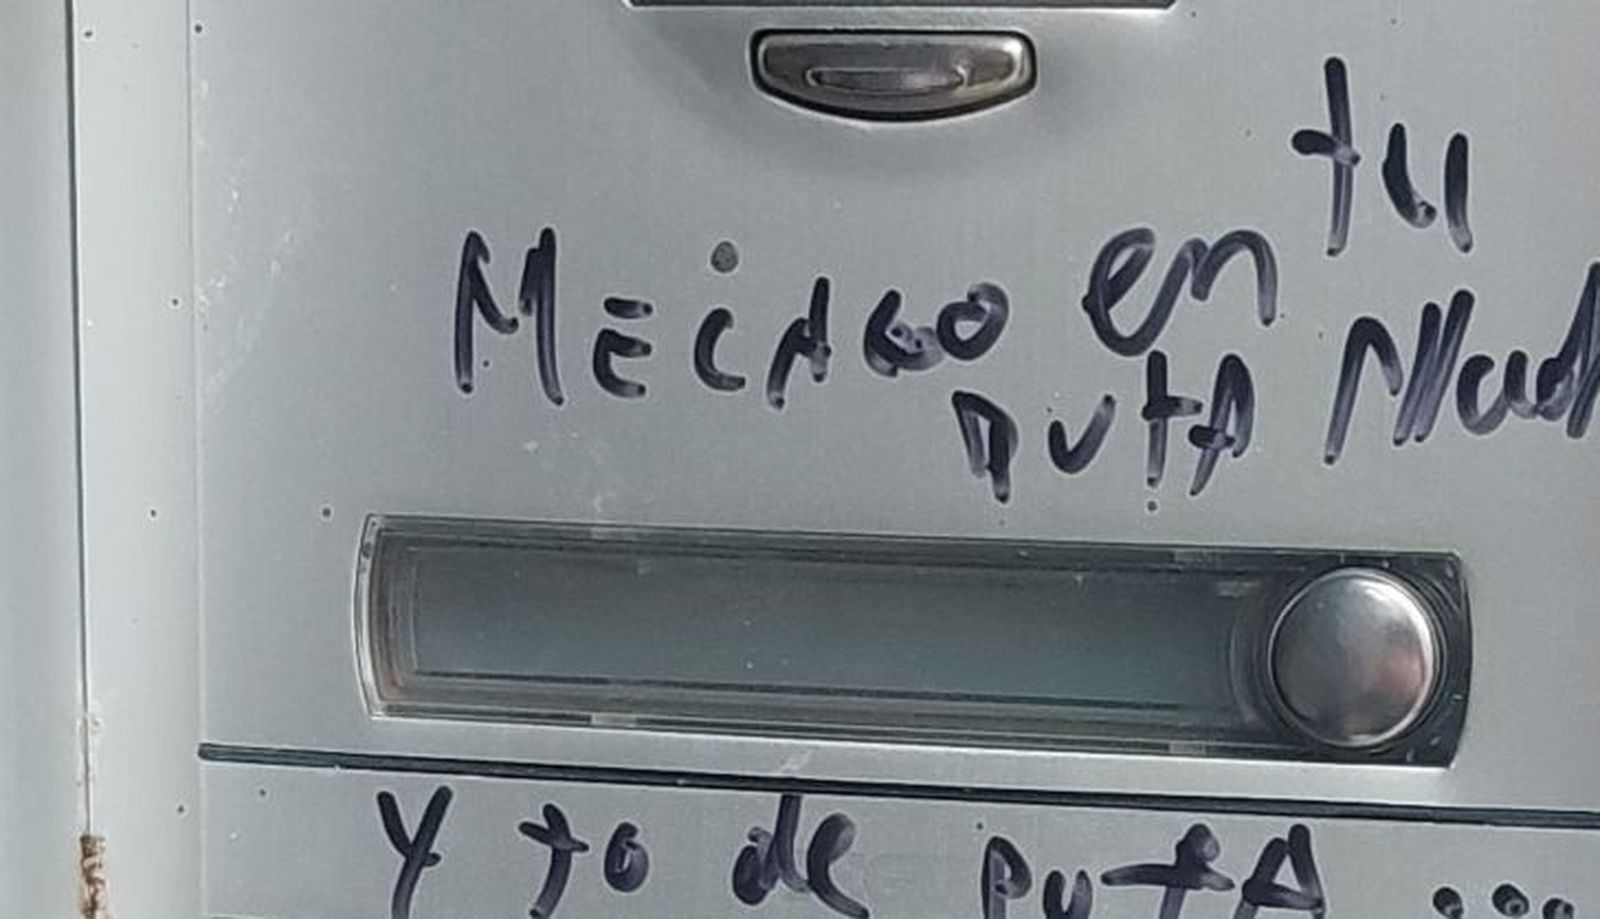 MECAGO en tu
PUTA Mad
Y yo de PUTA ...